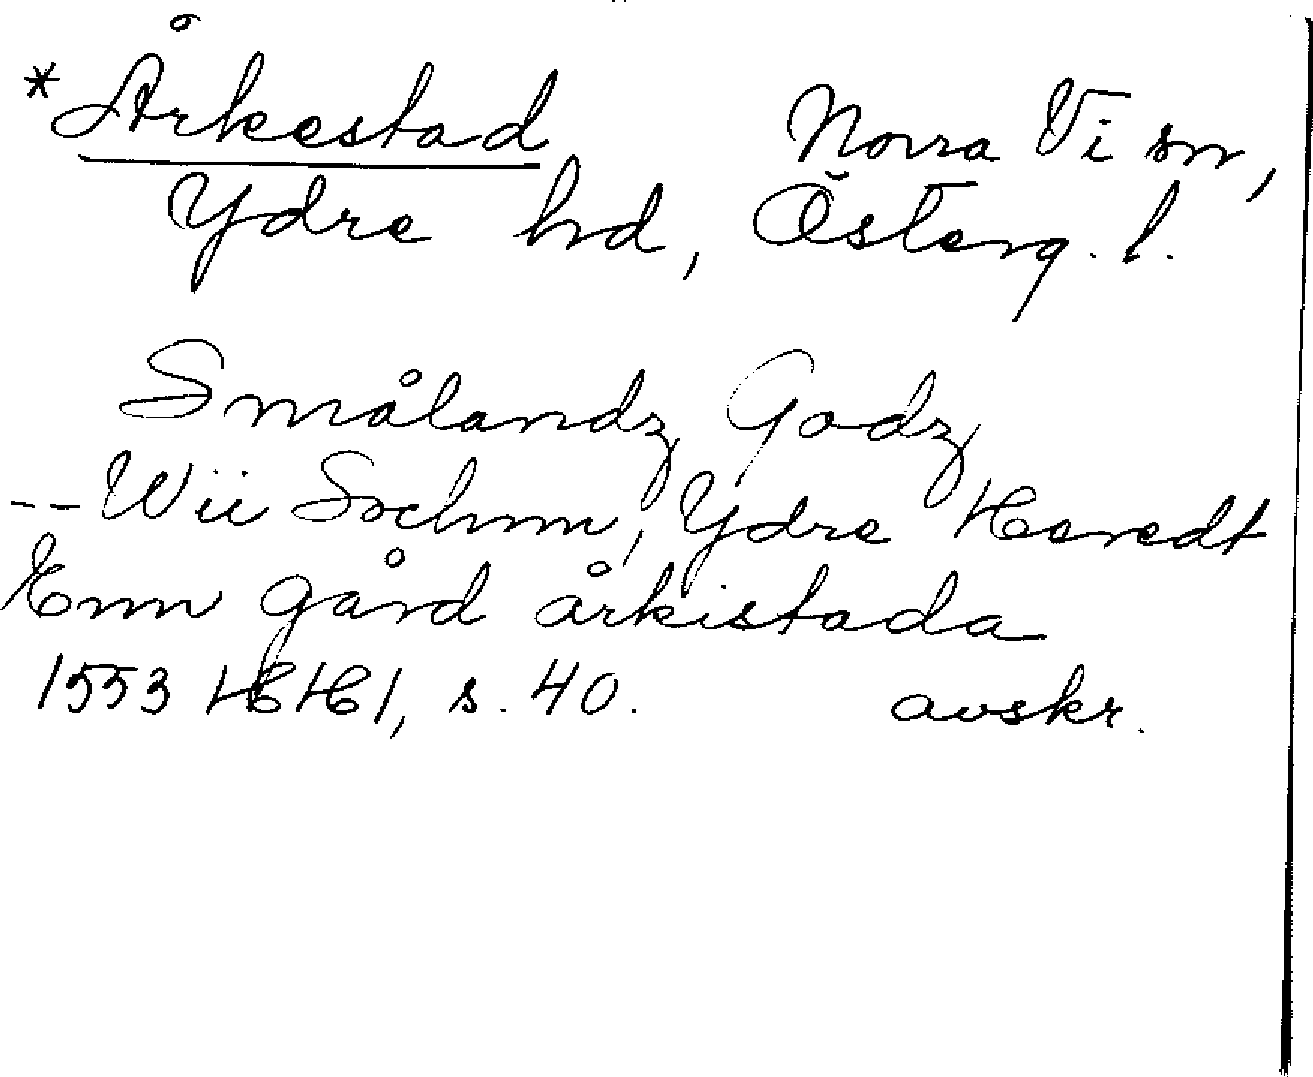 *Årkestad Norra Vi sn,
Ydre hd, Österg. l.
Smålandz Godz
-- Wii Sochnn, Ydre Heredt
Enn gård årkistada
1553 HH 1, s. 40. avskr.